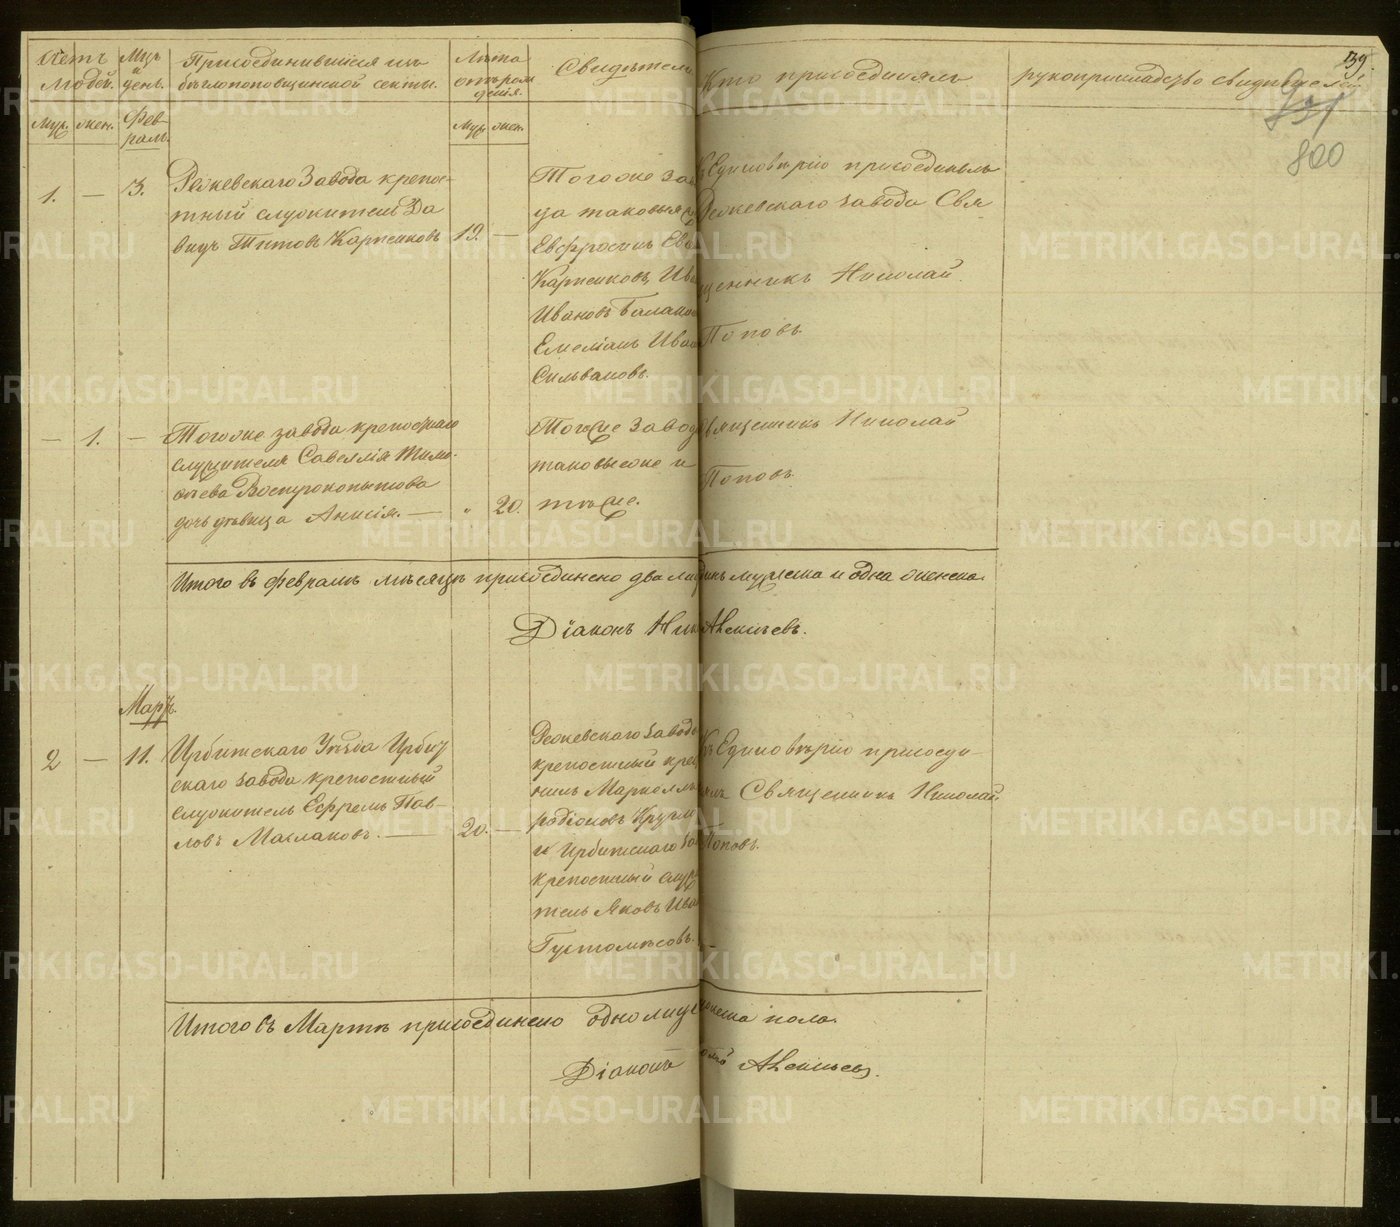 Счетъ людей.
Мцъ и день.
Присоединившіеся изъ бѣглопоповщинской секты.
Лѣта отъ рожденія.
Свидѣтели
Кто присоединялъ
рукоприкладство свидѣтелей
139.
800
Муж. жен.
Февраль.
муж. жен.
1. — 3.
Режевскаго Завода крѣпос-
тный служитель Да
видъ Титовъ Карташовъ
19. —
Тогоже зав
да таковые
Евфросинъ Ев
Карташовъ, Ива
Ивановъ Балак
Емеліанъ Иван
Сильвановъ.
Къ Единовѣрію присоединилъ
Режевскаго завода Свя
щенникъ Николай
Поповъ.
— 1. —
Тогоже завода крепостнаго
служителя Савеллія Тимо-
ѳеева Вострокопытова
дочь дѣвица Анисія. —
" 20.
Тогоже Завод
таковыеже и
тѣже.
Священникъ Николай
Поповъ
Итого въ февралѣ мѣсяцѣ присоединено два лица одинъ мужеска и одна женска.
Діаконъ Ник Алексѣевъ.
Мартъ.
2 — 11.
Ирбитскаго Уѣзда Ирбит
скаго завода крепостный
служитель Ефремъ Пав-
ловъ Маслаковъ. —
20. —
Режевскаго завода
крепостный
родіоновъ
и Ирбитскаго за
крепостный служи
тель Яковъ Ива
Густомѣсовъ.
Къ Единовѣрію присоеди-
нилъ Священникъ Николай
Поповъ.
Итого въ Мартѣ присоединено одно лице мужеска пола.
Діаконъ Алексѣевъ.
METRIKI.GASO-URAL.RU